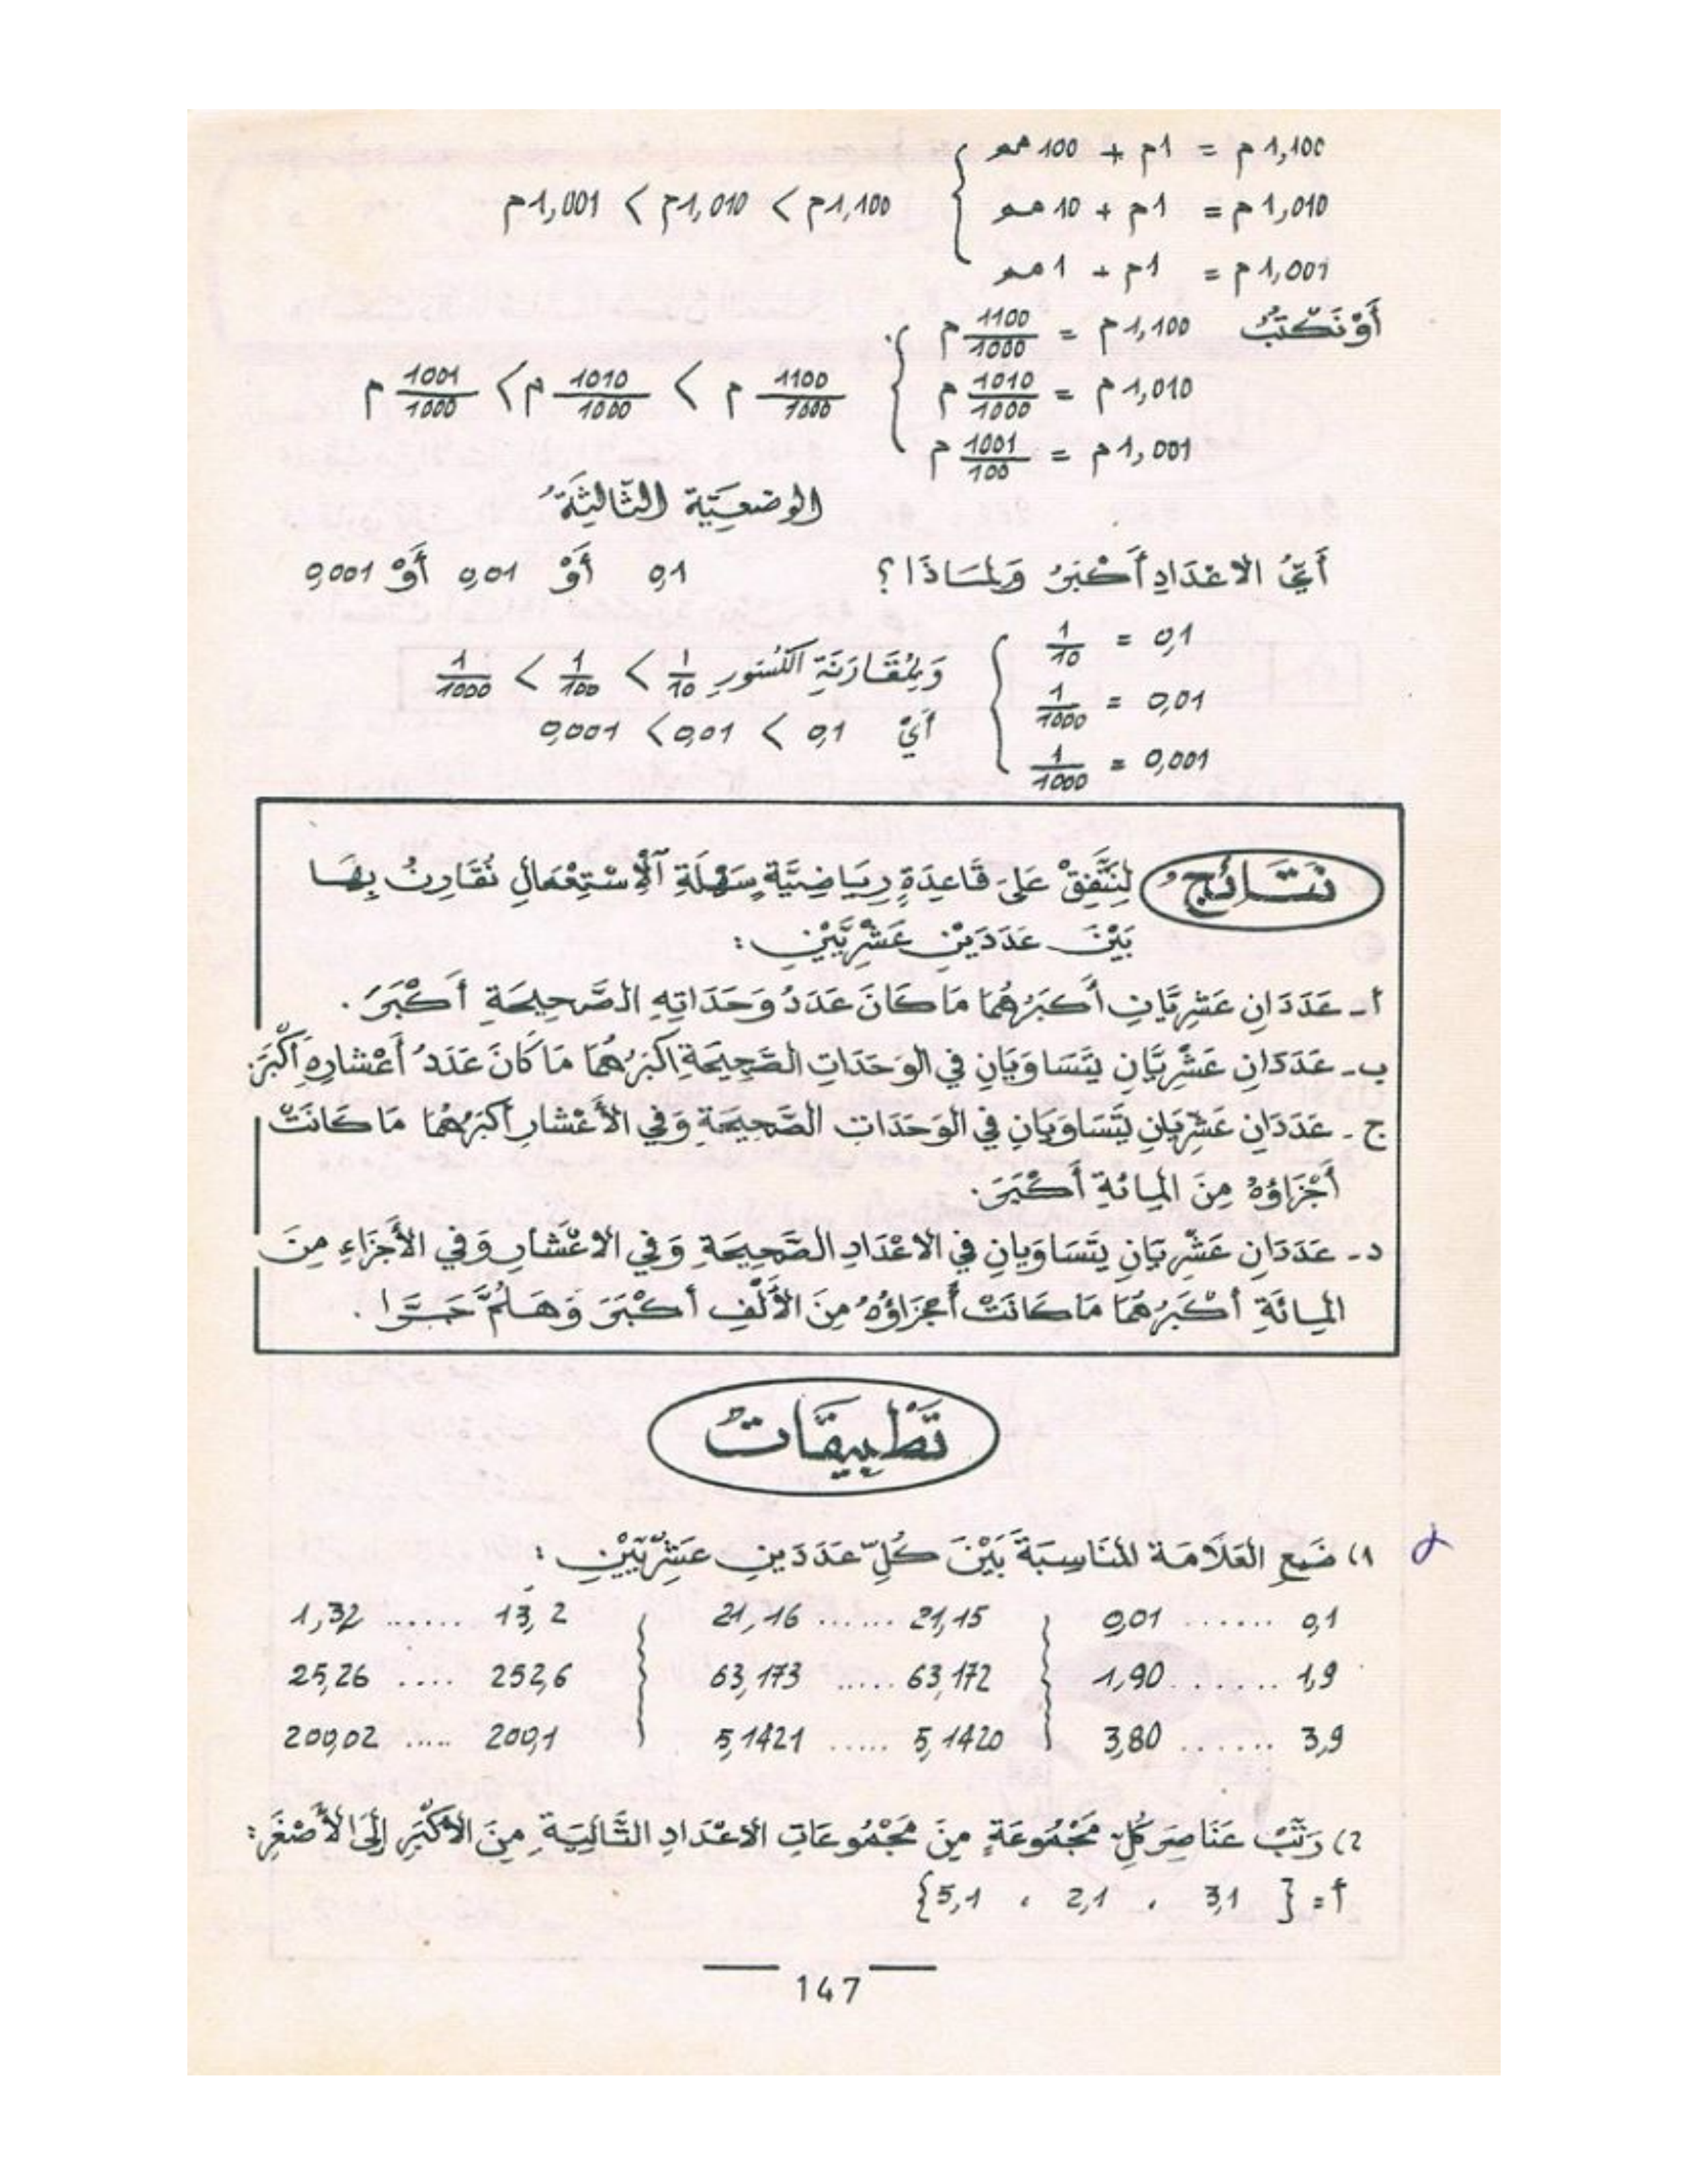 1,100م = 1م + 100مم
1,010م = 1م + 10مم
1,001م = 1م + 1مم
1,100م < 1,010م < 1,001م
أَوْ نَكْتُبُ 1,100م = 1100/1000 م
1,010م = 1010/1000 م
1,001م = 1001/100 م
1100/1000 م < 1010/1000 م < 1001/1000 م
الوضعيّة الثّالثة
أَيُّ الاعْدَادِ أَكْبَرُ وَلِمَاذَا؟ 0,1 أَوْ 0,01 أَوْ 0,001
0,1 = 1/10
0,01 = 1/1000
0,001 = 1/1000
وَبِمُقَارَنَةِ الكُسُورِ 1/10 < 1/100 < 1/1000
أَيْ 0,1 < 0,01 < 0,001
نَتَائِجُ لِنَتَّفِقْ عَلَى قَاعِدَةٍ رِيَاضِيَّةٍ سَهْلَةِ الْإِسْتِعْمَالِ نُقَارِنُ بِهَا
بَيْنَ عَدَدَيْنِ عَشْرِيَّيْنِ :
أ- عَدَدَانِ عَشْرِيَّانِ أَكْبَرُهُمَا مَا كَانَ عَدَدُ وَحَدَاتِهِ الصَّحِيحَةِ أَكْبَرَ .
ب- عَدَدَانِ عَشْرِيَّانِ يَتَسَاوَيَانِ في الوَحَدَاتِ الصَّحِيحَةِ أَكْبَرُهُمَا مَا كَانَ عَدَدُ أَعْشَارِهِ أَكْبَرَ.
ج- عَدَدَانِ عَشْرِيَانِ يَتَسَاوَيَانِ في الوَحَدَاتِ الصَّحِيحَةِ وَفي الأَعْشَارِ أَكْبَرُهُمَا مَا كَانَتْ
أَجْزَاؤُهُ مِنَ المِائَةِ أَكْبَرَ.
د- عَدَدَانِ عَشْرِيَانِ يَتَسَاوَيَانِ في الاعْدَادِ الصَّحِيحَةِ وَفي الاعْشَارِ وَفي الأَجْزَاءِ مِنَ
المِائَةِ أَكْبَرُهُمَا مَا كَانَتْ أَجْزَاؤُهُ مِنَ الأَلْفِ أَكْبَرَ وَهَلُمَّ جَرًّا .
تَطْبِيقَاتٌ
1) ضَعِ العَلَامَة المُنَاسِبَةَ بَيْنَ كُلِّ عَدَدَينِ عَشْرِيَّيْنِ :
0,1 ...... 0,01 21,15 ...... 21,16 13,2 ...... 1,32
1,9 ...... 1,90 63,172 ..... 63,173 252,6 .... 25,26
3,9 ...... 3,80 5,1420 ..... 5,1421 200,1 ..... 200,02
2) رَتِّبْ عَنَاصِرَ كُلِّ مَجْمُوعَةٍ مِنَ مَجْمُوعَاتِ الاعْدَادِ التَّالِيَةِ مِنَ الأَكْبَرِ إِلَى الأَصْغَرِ:
أ = { 3,1 ، 2,1 ، 5,1 }
147